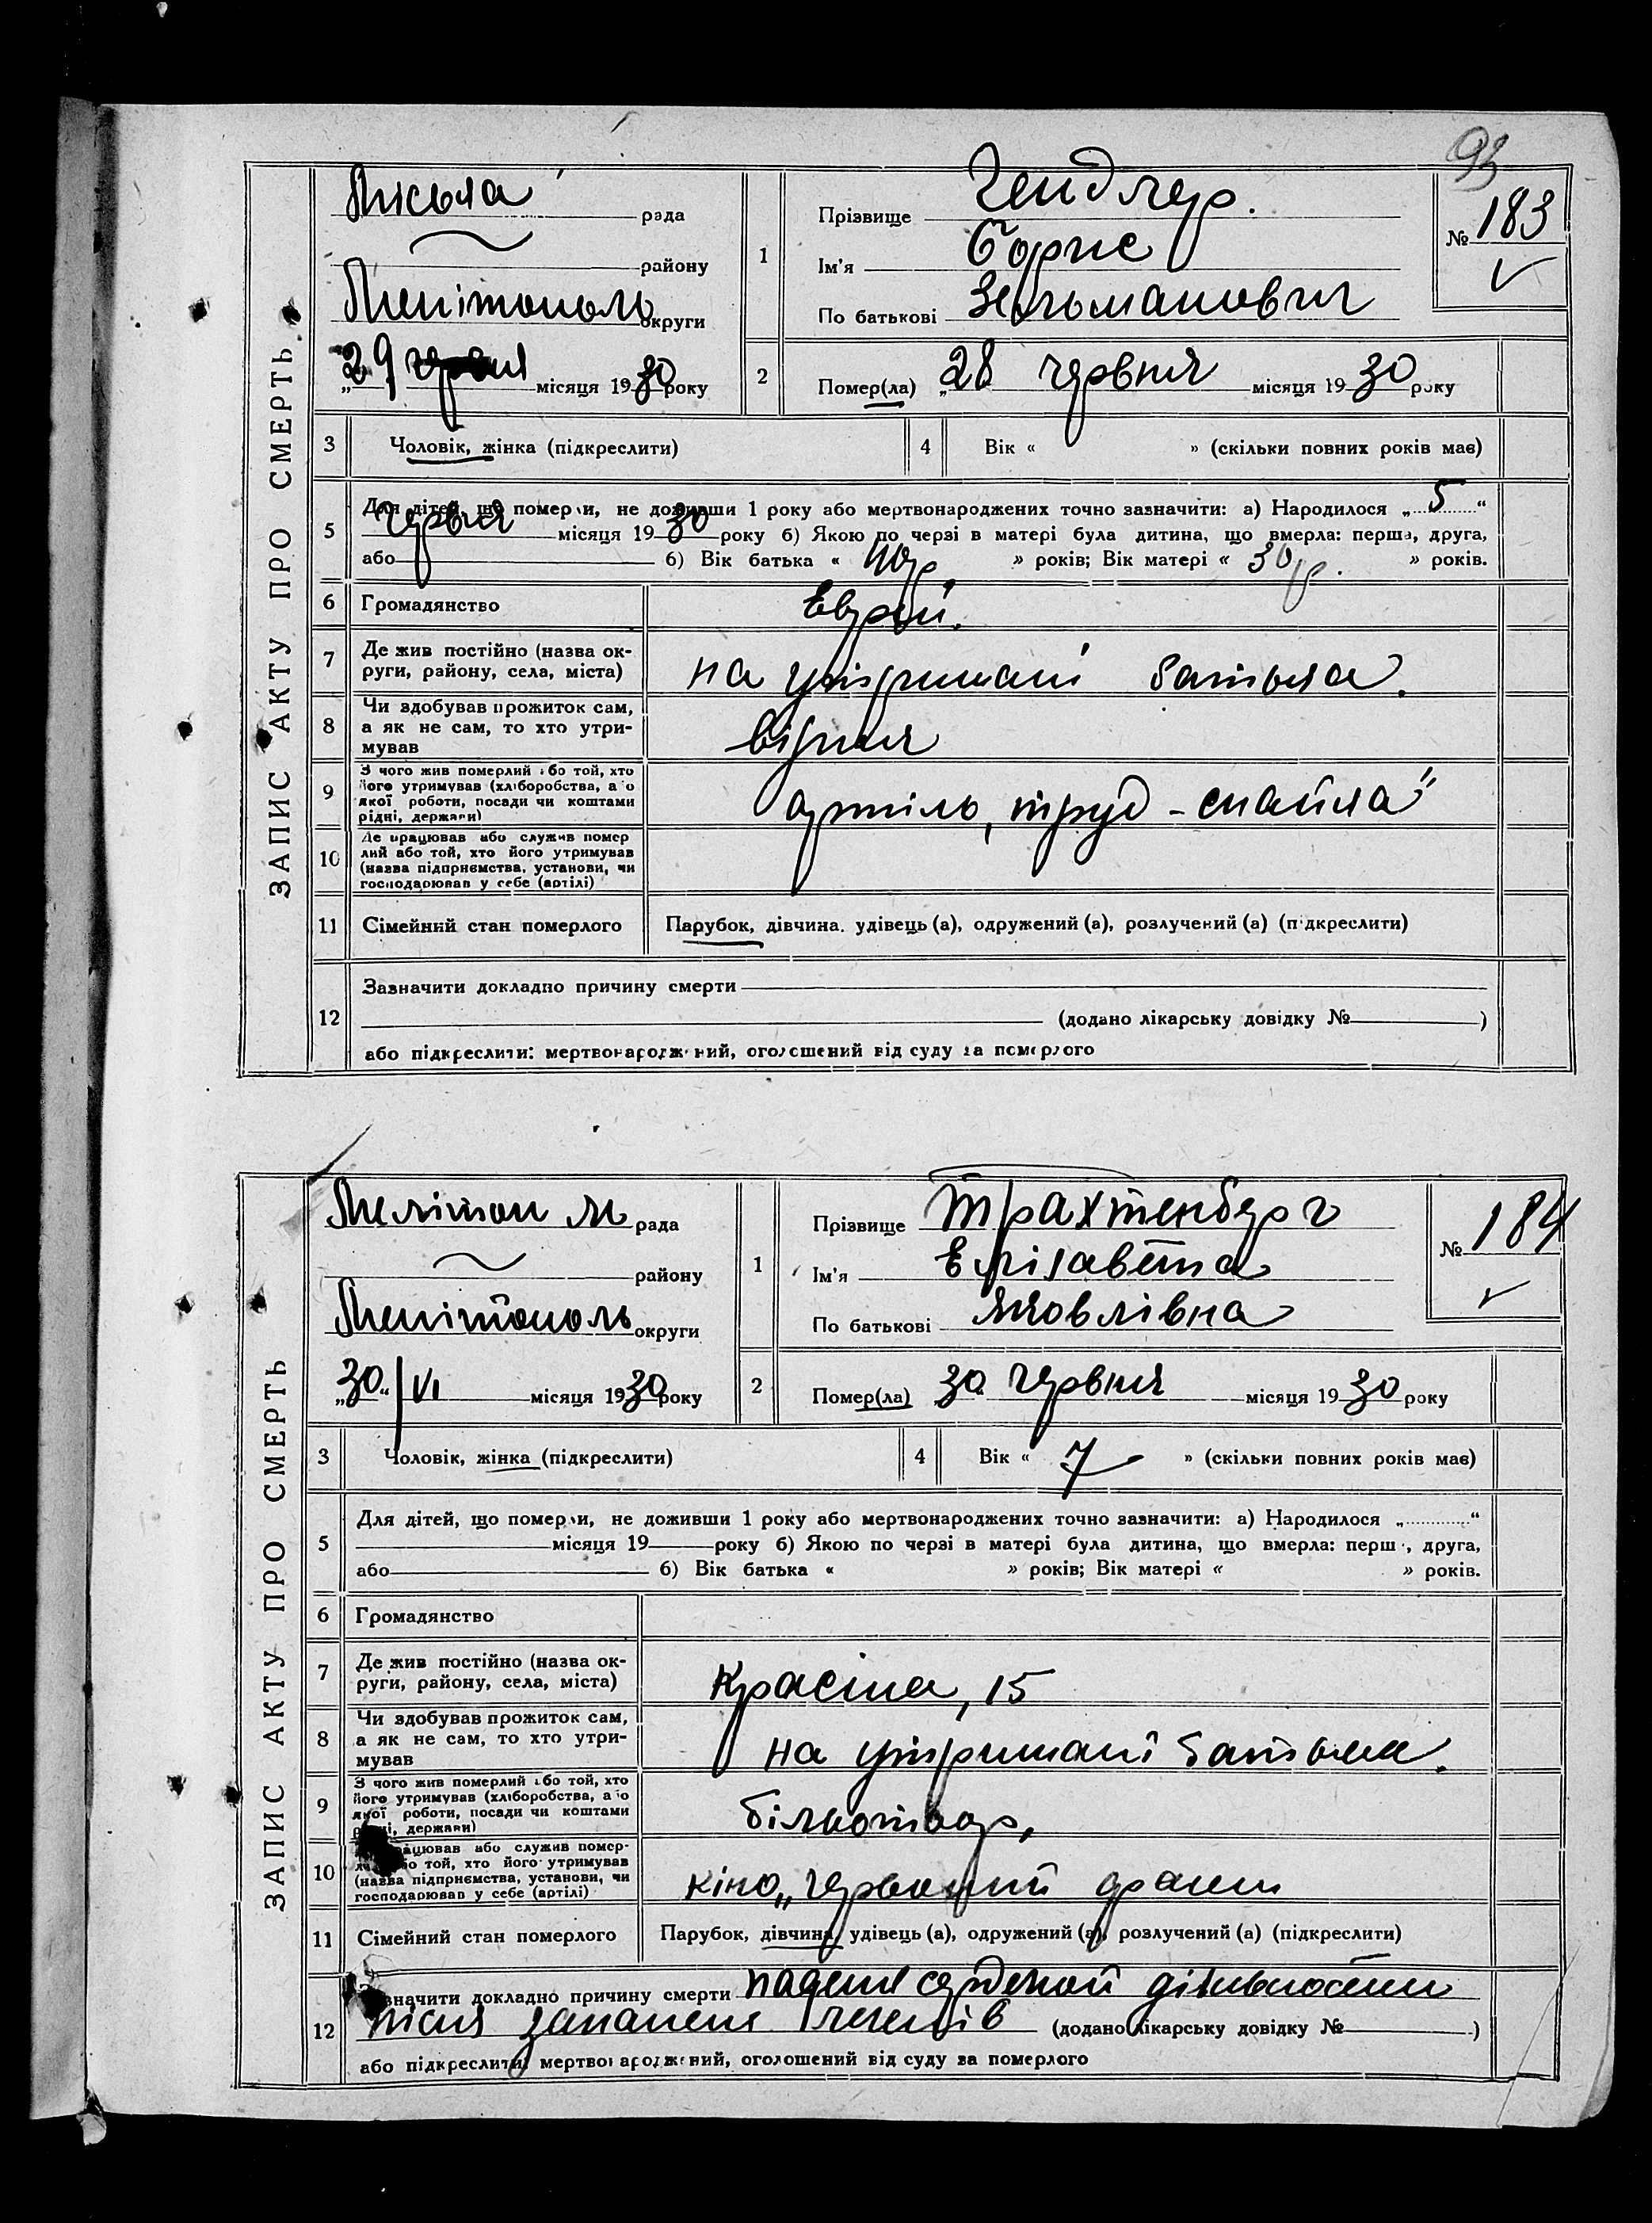 93
ЗАПИС АКТУ ПРО СМЕРТЬ
Міська рада
району
Мелітополь округи
„29 червня місяця 1930 року
1
Прізвище Гендлер.
Ім'я Борис
По батькові Зельманович
№ 183
2
Помер(ла) „28 червня місяця 1930 року
3 Чоловік, жінка (підкреслити)
4 Вік « » (скільки повних років має)
5 Для дітей, що померли, не доживши 1 року або мертвонароджених точно зазначити: а) Народилося „5“
червня місяця 1930 року б) Якою по черзі в матері була дитина, що вмерла: перша, друга,
або б) Вік батька « 40 р. » років; Вік матері « 30 р. » років.
6 Громадянство Еврей.
7 Де жив постійно (назва ок-
руги, району, села, міста) на утриманні батька.
8 Чи здобував прожиток сам,
а як не сам, то хто утри-
мував
9 З чого жив померлий або той, хто
його утримував (хліборобства, або
якої роботи, посади чи коштами
рідні, держави) артіль, труд-
10 Де працював або служив помер
лий або той, хто його утримував
(назва підприємства, установи, чи
господарював у себе (артілі)
11 Сімейний стан померлого Парубок, дівчина, удівець (а), одружений (а), розлучений (а) (підкреслити)
12 Зазначити докладно причину смерти
(додано лікарську довідку № )
або підкреслити: мертвонароджений, оголошений від суду за померлого
ЗАПИС АКТУ ПРО СМЕРТЬ
Мелітоп м рада
району
Мелітополь округи
„30“/VI місяця 1930 року
1
Прізвище Трахтенберг
Ім'я Елізавета
По батькові Яковлівна
№ 184
2
Помер(ла) 30 червня місяця 1930 року
3 Чоловік, жінка (підкреслити)
4 Вік « 7 » (скільки повних років має)
5 Для дітей, що померли, не доживши 1 року або мертвонароджених точно зазначити: а) Народилося „ “
місяця 19 року б) Якою по черзі в матері була дитина, що вмерла: перш , друга,
або б) Вік батька « » років; Вік матері « » років.
6 Громадянство
7 Де жив постійно (назва ок-
руги, району, села, міста) Красіна, 15
8 Чи здобував прожиток сам,
а як не сам, то хто утри-
мував на утриманні батька.
9 З чого жив померлий або той, хто
його утримував (хліборобства, або
якої роботи, посади чи коштами
рідні, держави) більотьор,
10 Де працював або служив помер-
лий або той, хто його утримував
(назва підприємства, установи, чи
господарював у себе (артілі) кіно „Червоний
11 Сімейний стан померлого Парубок, дівчина, удівець (а), одружений (а), розлучений (а) (підкреслити)
12 Зазначити докладно причину смерти падіня сердечної діяльности
після запаленя легенів (додано лікарську довідку № )
або підкреслити: мертвонароджений, оголошений від суду за померлого